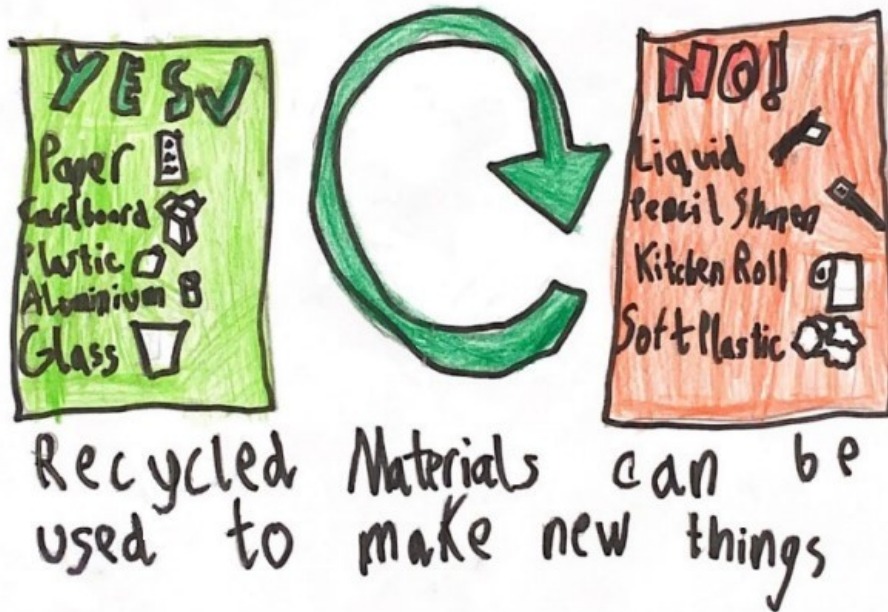 YES
Paper
Cardboard
Plastic
Aluminium
Glass
NO!
Liquid
Pencil
Kitchen Roll
Soft Plastic
Recycled Materials can be
used to make new things